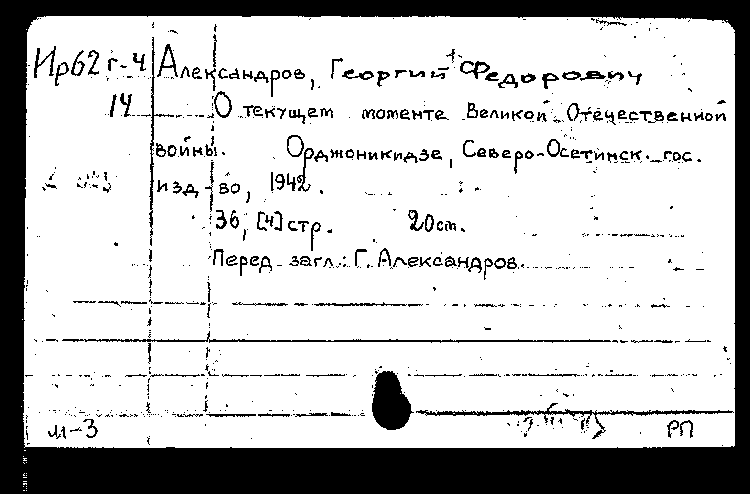 Ир62 г-4 Александров, Георгий Федорович
14 О текущем моменте Великой Отечественной
войны. Орджоникидзе, Северо-Осетинск. гос.
изд-во, 1942.
36, [4] стр. 20 см.
Перед загл.: Г. Александров.
м-3 РП